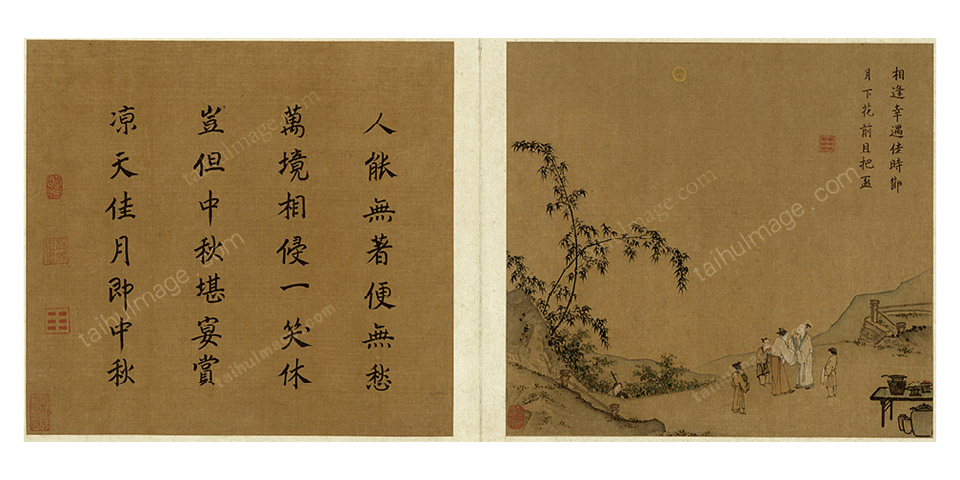 相逢幸遇佳時節
月下花前且把盃
人能無著便無愁
萬境相侵一笑休
豈但中秋堪宴賞
凉天佳月即中秋
taihuImage.com
taihuImage.com
taihuImage.com
taihuImage.com
taihuImage.com
taihuImage.com